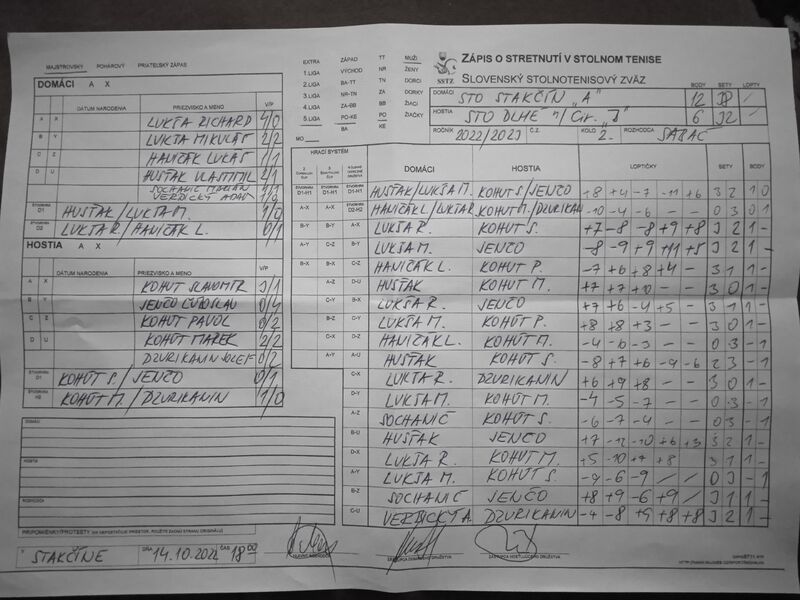 MAJSTROVSKÝ POHÁROVÝ PRIATEĽSKÝ ZÁPAS
DOMÁCI A X
DÁTUM NARODENIA PRIEZVISKO A MENO V/P
A X LUKŠA RICHARD 4/0
B Y LUKŠA MIKULÁŠ 2/2
C Z HANIČÁK LUKÁŠ 1/1
D U HUSŤAK VLASTIMIL 2/1
SOCHANIČ MARIÁN 1/1
VERDICKÝ ADAM 1/0
ŠTVORHRA D1 HUSŤAK/LUKŠA M. 1/0
ŠTVORHRA D2 LUKŠA R./HANIČÁK L. 0/1
HOSTIA A X
DÁTUM NARODENIA PRIEZVISKO A MENO V/P
A X KOHUT SLAVOMÍR 3/1
B Y JENČO ĽUBOSLAV 0/4
C Z KOHÚT PAVOL 0/2
D U KOHÚT MAREK 2/2
DZURIKANIN JOZEF 0/2
ŠTVORHRA D1 KOHÚT S./JENČO 0/1
ŠTVORHRA H2 KOHÚT M./DZURIKANIN 1/0
DOMÁCI
HOSTIA
ROZHODCA
PRIPOMIENKY/PROTESTY
V STAKČÍNE DŇA 14.10.2022 ČAS 18 00
EXTRA ZÁPAD TT MUŽI
1.LIGA VÝCHOD NR ŽENY
2.LIGA BA-TT TN DORCI
3.LIGA NR-TN ZA DORKY
4.LIGA ZA-BB BB ŽIACI
5.LIGA PO-KE PO ŽIAČKY
BA KE
MO
SSTZ
ZÁPIS O STRETNUTÍ V STOLNOM TENISE
SLOVENSKÝ STOLNOTENISOVÝ ZVÄZ
BODY SETY LOPTY
DOMÁCI STO STAKČÍN "A" 12
HOSTIA STO DLHÉ n/Cir. 6 32
ROČNÍK 2022/2023 Č.Z. KOLO 2. ROZHODCA SABAČ
HRACÍ SYSTÉM
DOMÁCI HOSTIA LOPTIČKY SETY BODY
ŠTVORHRA D1-H1 ŠTVORHRA D1-H1 ŠTVORHRA D1-H1 HUSŤAK/LUKŠA M. KOHÚT S/JENČO +8 +4 -7 -11 +6 3 2 1 0
A-X A-X ŠTVORHRA D2-H2 HANIČÁK L/LUKŠA R KOHÚT M./DZURIKANIN -10 -4 -6 - - 0 3 0 1
B-Y B-Y A-X LUKŠA R. KOHÚT S. +7 -8 -8 +9 +8 3 2 1 -
A-Y C-Z B-Y LUKŠA M. JENČO -8 -9 +9 +11 +5 3 2 1 -
B-X B-X C-Z HANIČÁK L. KOHÚT P. -7 +6 +8 +4 - 3 1 1 -
A-Z D-U HUSŤAK KOHÚT M. +7 +7 +10 - - 3 0 1 -
C-Y B-X LUKŠA R. JENČO +7 +6 -4 +5 - 3 1 1 -
B-Z C-Y LUKŠA M. KOHÚT P. +8 +8 +3 - - 3 0 1 -
C-X D-Z HANIČÁK L. KOHÚT M. -4 -6 -3 - - 0 3 - 1
A-Y A-U HUSŤAK KOHÚT S. -8 +7 +6 -9 -6 2 3 - 1
C-X LUKŠA R. DZURIKANIN +6 +9 +8 - - 3 0 1 -
D-Y LUKŠA M. KOHÚT M. -4 -5 -7 - - 0 3 - 1
A-Z SOCHANIČ KOHÚT S. -6 -7 -4 - - 0 3 - 1
B-U HUSŤAK JENČO +7 -12 -10 +6 +3 3 2 1 -
D-X LUKŠA R. KOHÚT M. +5 -10 +7 +8 3 1 1 -
A-Y LUKŠA M. KOHÚT S. -9 -6 -9 / / 0 3 - 1
B-Z SOCHANIČ JENČO +8 +9 -6 +9 / 3 1 1 -
C-U VERDICKÝ A. DZURIKANIN -4 -8 +9 +8 +8 3 2 1 -